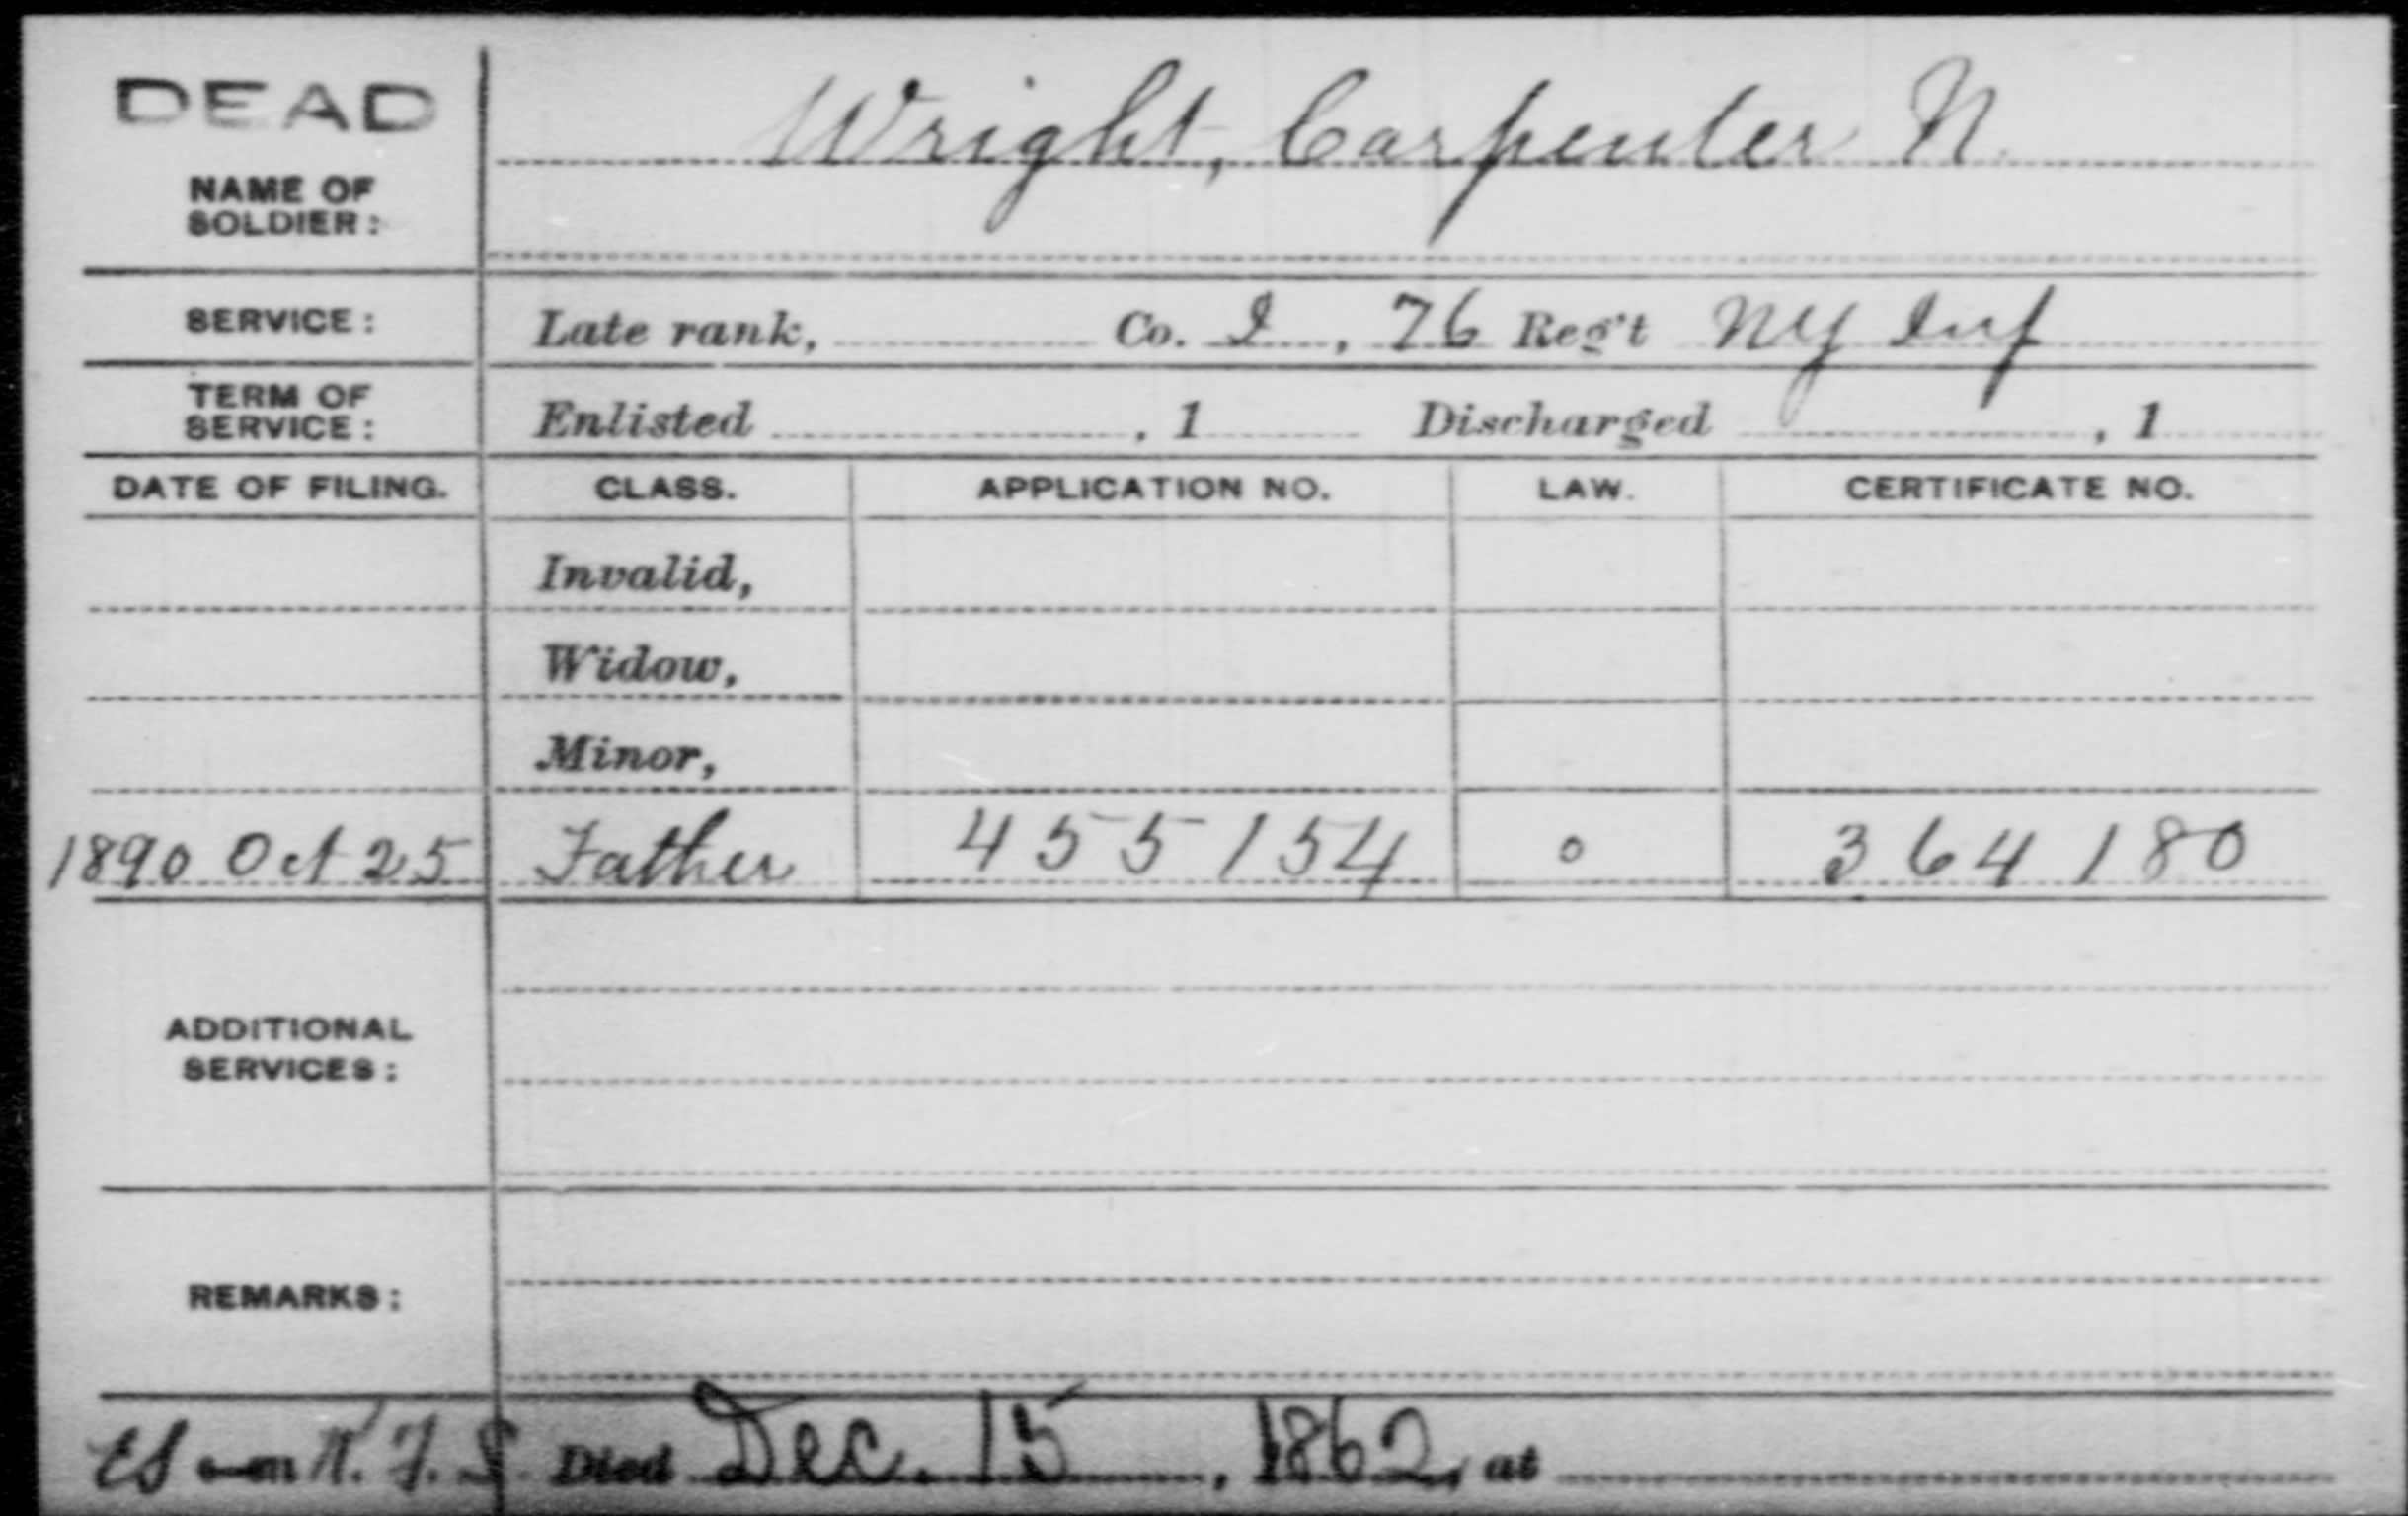 DEAD
NAME OF
SOLDIER:
Wright, Carpenter N.
SERVICE: Late rank, Co. I, 76 Reg't NY Inf
TERM OF
SERVICE: Enlisted , 1 Discharged , 1
DATE OF FILING. CLASS. APPLICATION NO. LAW. CERTIFICATE NO.
Invalid,
Widow,
Minor,
1890 Oct 25 Father 455154 0 364180
ADDITIONAL
SERVICES:
REMARKS:
Died Dec. 15, 1862, at